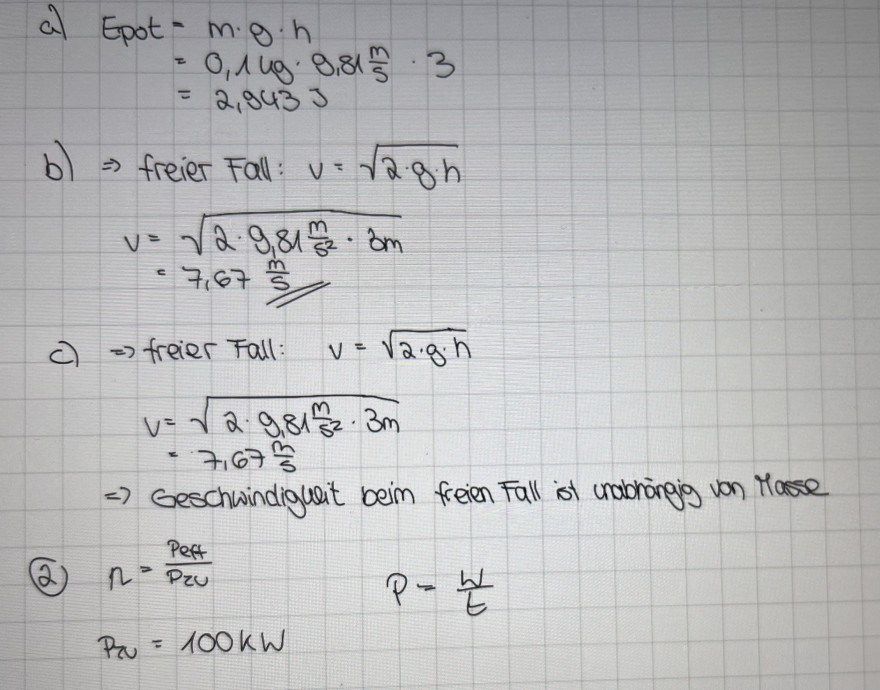 a) Epot = m·g·h
= 0,1 kg · 9,81 m/s · 3
= 2,943 J
b) => freier Fall: v = √2·g·h
v = √2·9,81 m/s² · 3m
= 7,67 m/s
c) => freier Fall: v = √2·g·h
v = √2·9,81 m/s² · 3m
= 7,67 m/s
=> Geschwindigkeit beim freien Fall ist unabhängig von Masse
② η = Peff/Pzu P = W/t
Pzu = 100 KW